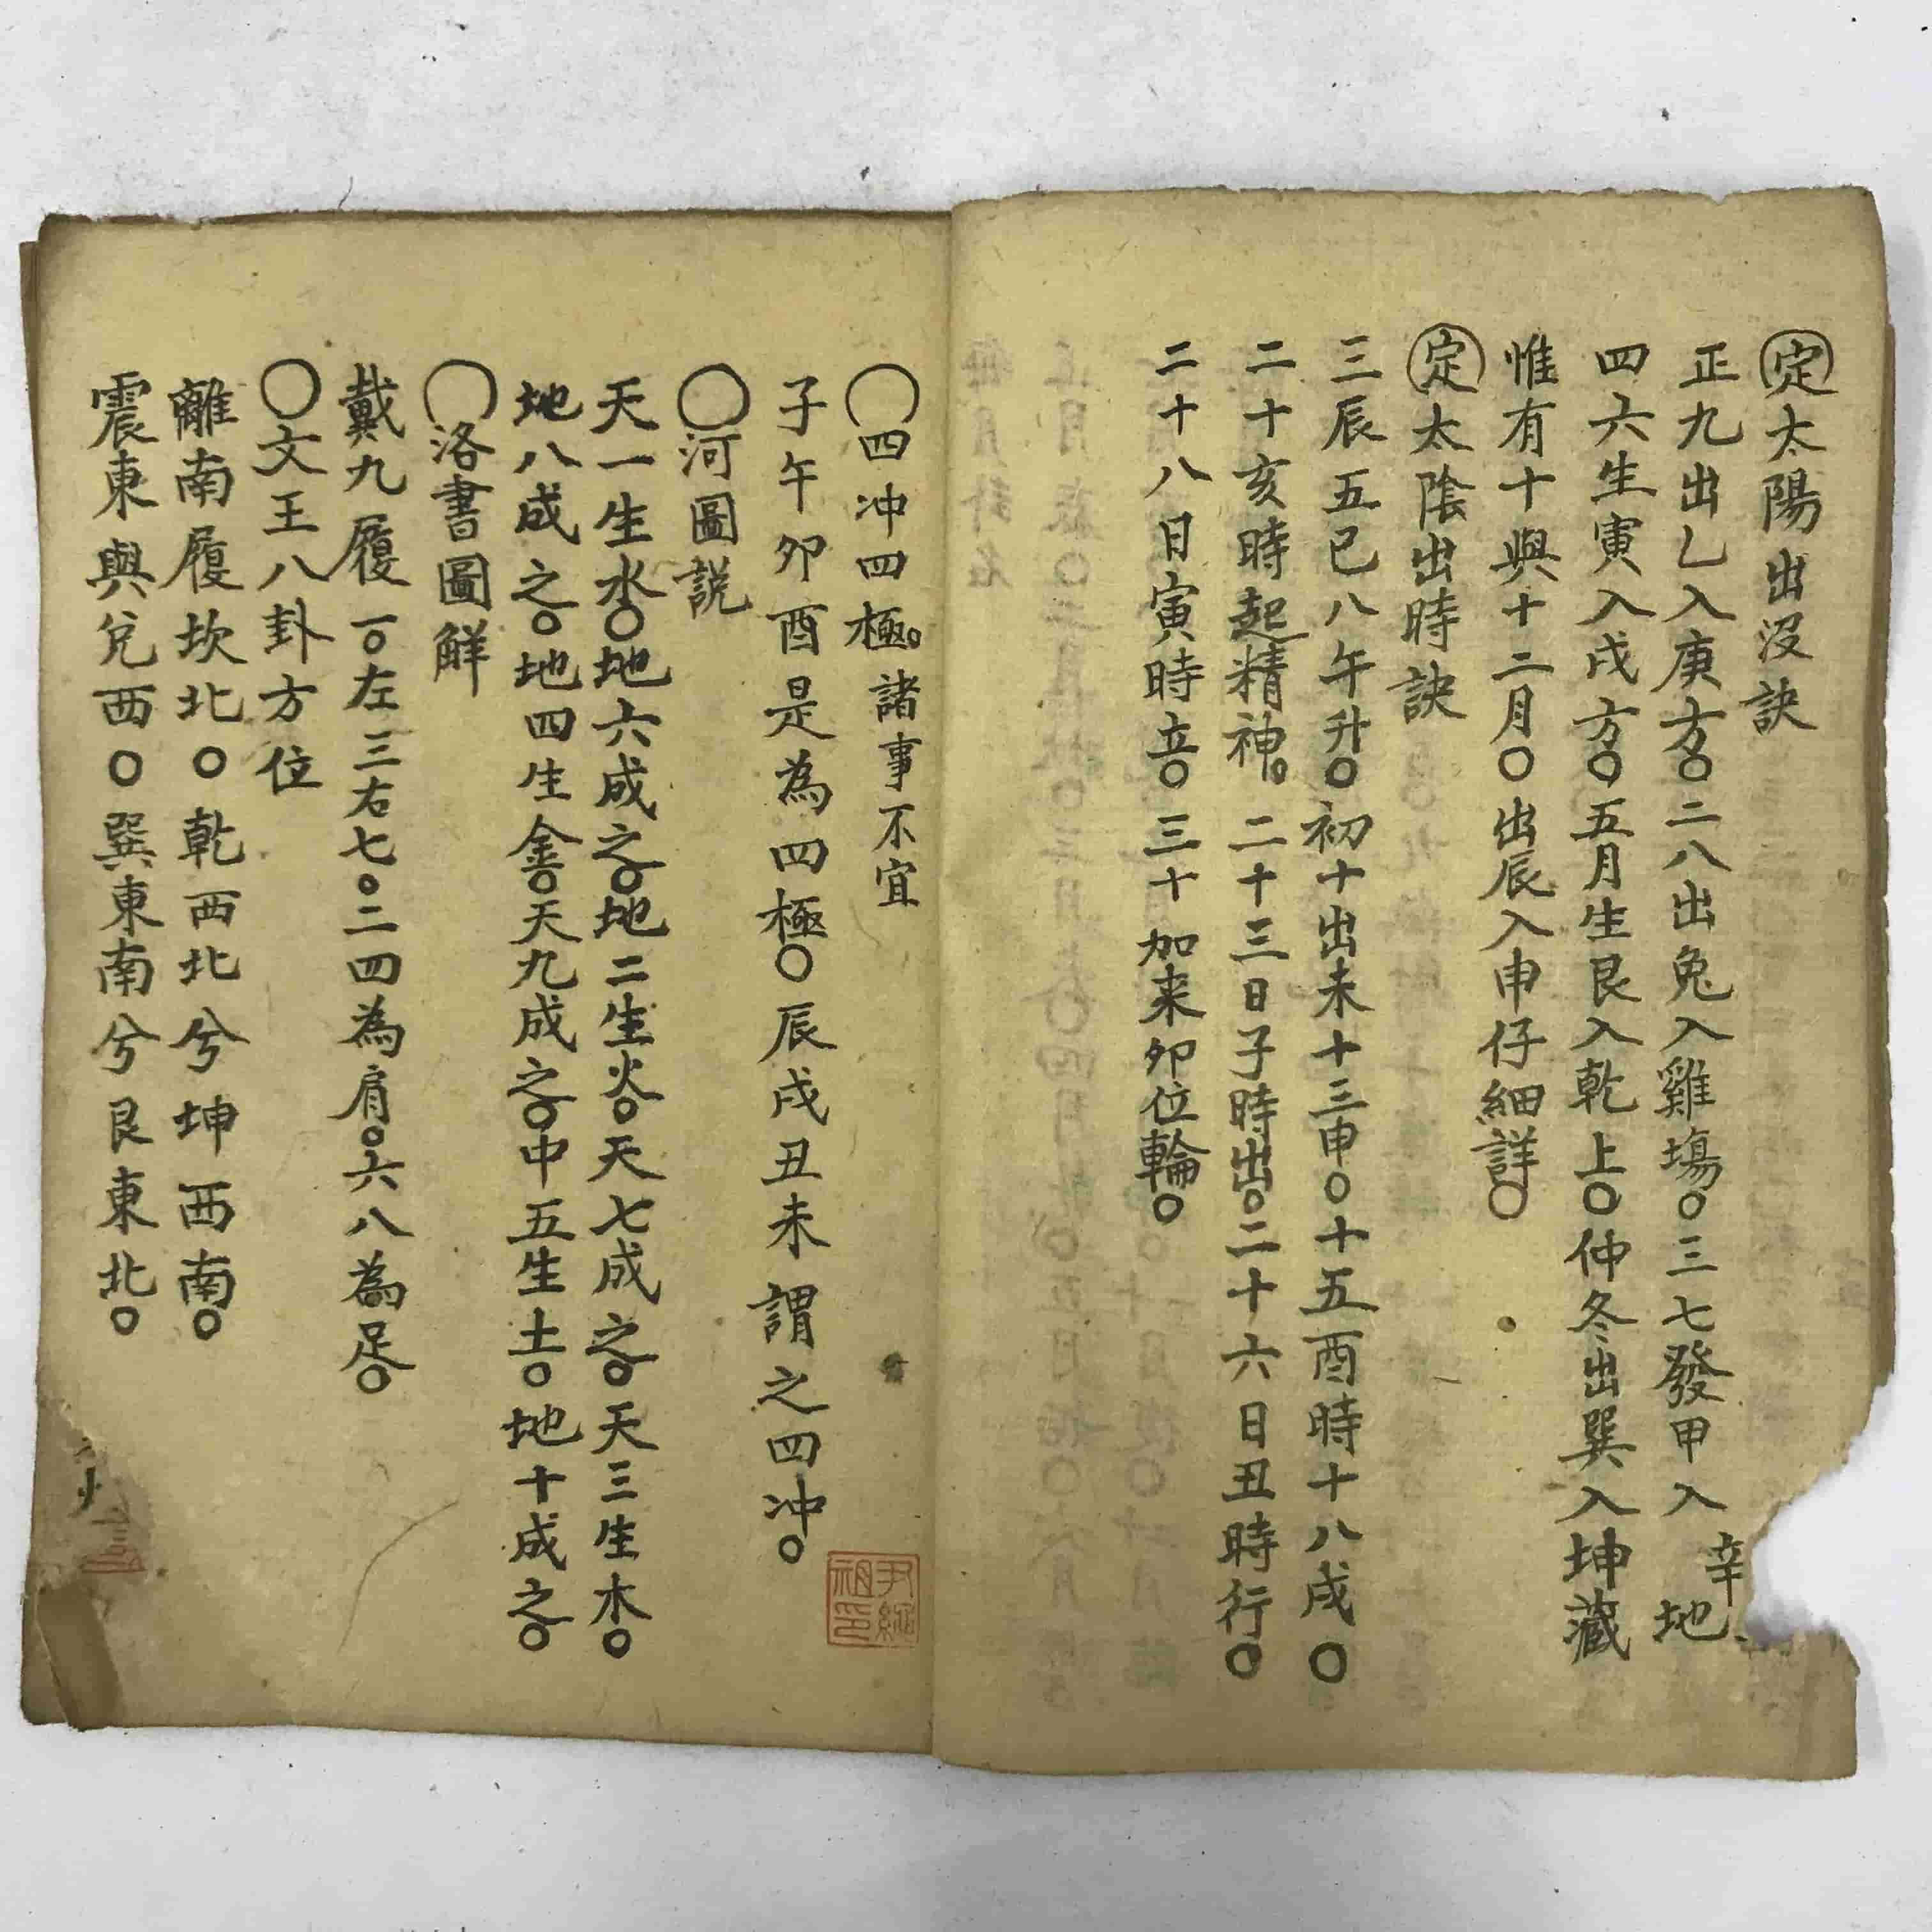 定太陽出沒訣
正九出乙入庚方〇二八出兔入雞場〇三七發甲入辛地
四六生寅入戌方〇五月生艮入乾上〇仲冬出巽入坤藏
惟有十與十二月〇出辰入申仔細詳〇
定太陰出時訣
三辰五巳八午升〇初十出未十三申〇十五酉時十八戌〇
二十亥時起精神。二十三日子時出。二十六日丑時行〇
二十八日寅時音〇三十加来卯位輪〇
〇四冲四極。諸事不宜
子午卯酉是為四極〇辰戌丑未謂之四冲。
〇河圖説
天一生水〇地六成之〇地二生火〇天七成之〇天三生木〇
地八成之〇地四生金〇天九成之〇中五生土〇地十成之〇
〇洛書圖觧
戴九履一〇左三右七〇二四為肩〇六八為足〇
〇文王八卦方位
離南履坎北〇乾西北兮坤西南〇
震東與兌西〇巽東南兮艮東北〇